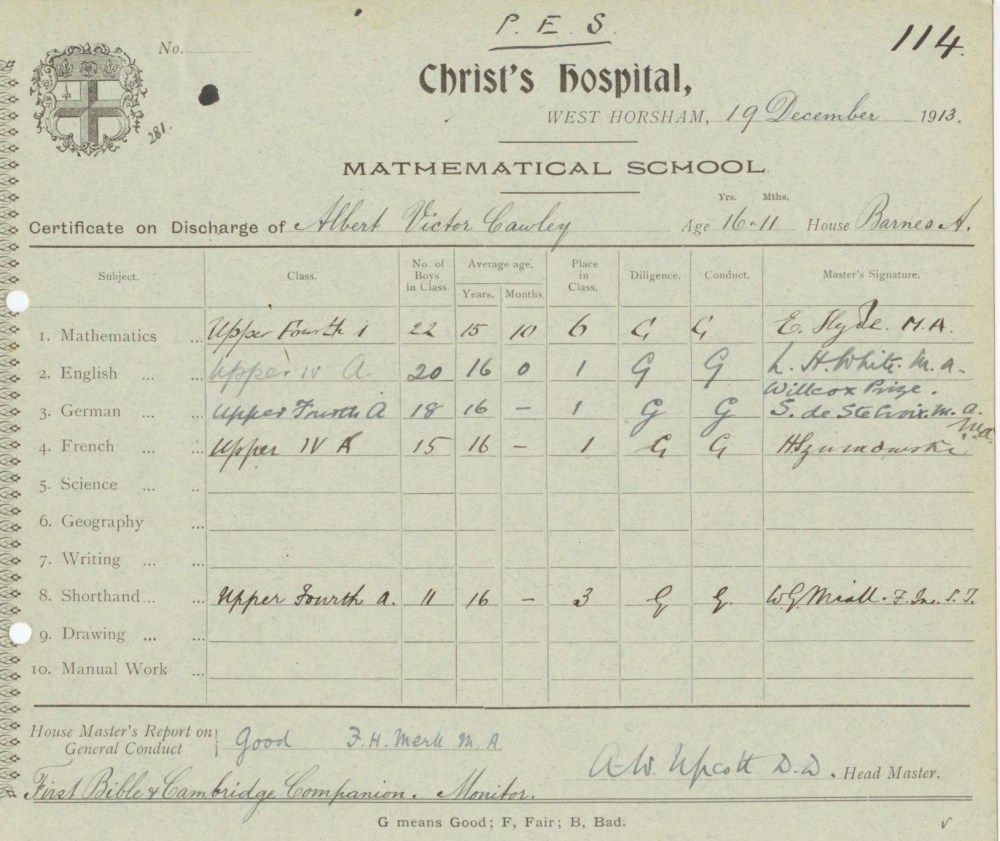 P. E. S.
114.
No.
Christ's Hospital,
281.
WEST HORSHAM, 19 December 1913.
MATHEMATICAL SCHOOL
Yrs. Mths.
Certificate on Discharge of Albert Victor Cawley Age 16-11 House Barnes A.
Subject. Class. No. of Boys in Class. Average age. Years. Months. Place in Class. Diligence. Conduct. Master's Signature.
1. Mathematics ... Upper Fourth 1 22 15 10 6 G G E. Hyde. M.A.
2. English ... ... Upper IV A 20 16 0 1 G G L. H. White. M.a.
Willcox Prize.
3. German ... ... Upper Fourth A 18 16 – 1 G G S. de Ste Croix. M.A.
4. French ... Upper IV A 15 16 – 1 G G H Szumowski M.A.
5. Science ... ...
6. Geography ...
7. Writing ... ...
8. Shorthand... ... Upper Fourth a. 11 16 – 3 G G. W.G. Miall. F. Inc. S. T.
9. Drawing ... ...
10. Manual Work ...
House Master's Report on General Conduct } Good F. H. Merk M.A
A.W. Upcott D.D. Head Master.
First Bible & Cambridge Companion. Monitor.
G means Good; F, Fair; B, Bad.